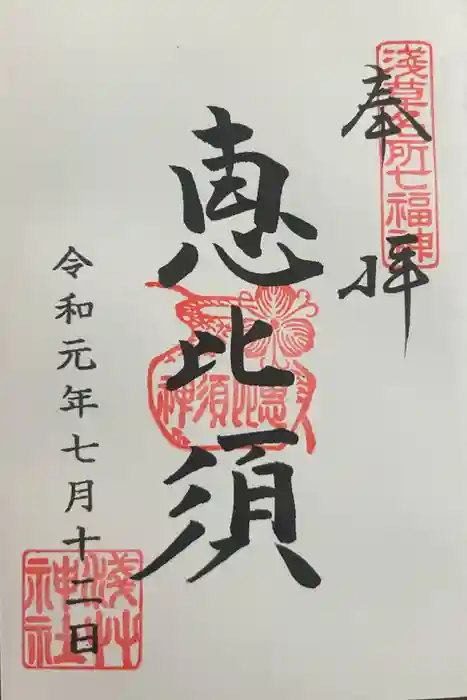 奉拝
浅草名所七福神
恵比須
恵比須神
令和元年七月十二日
浅草神社